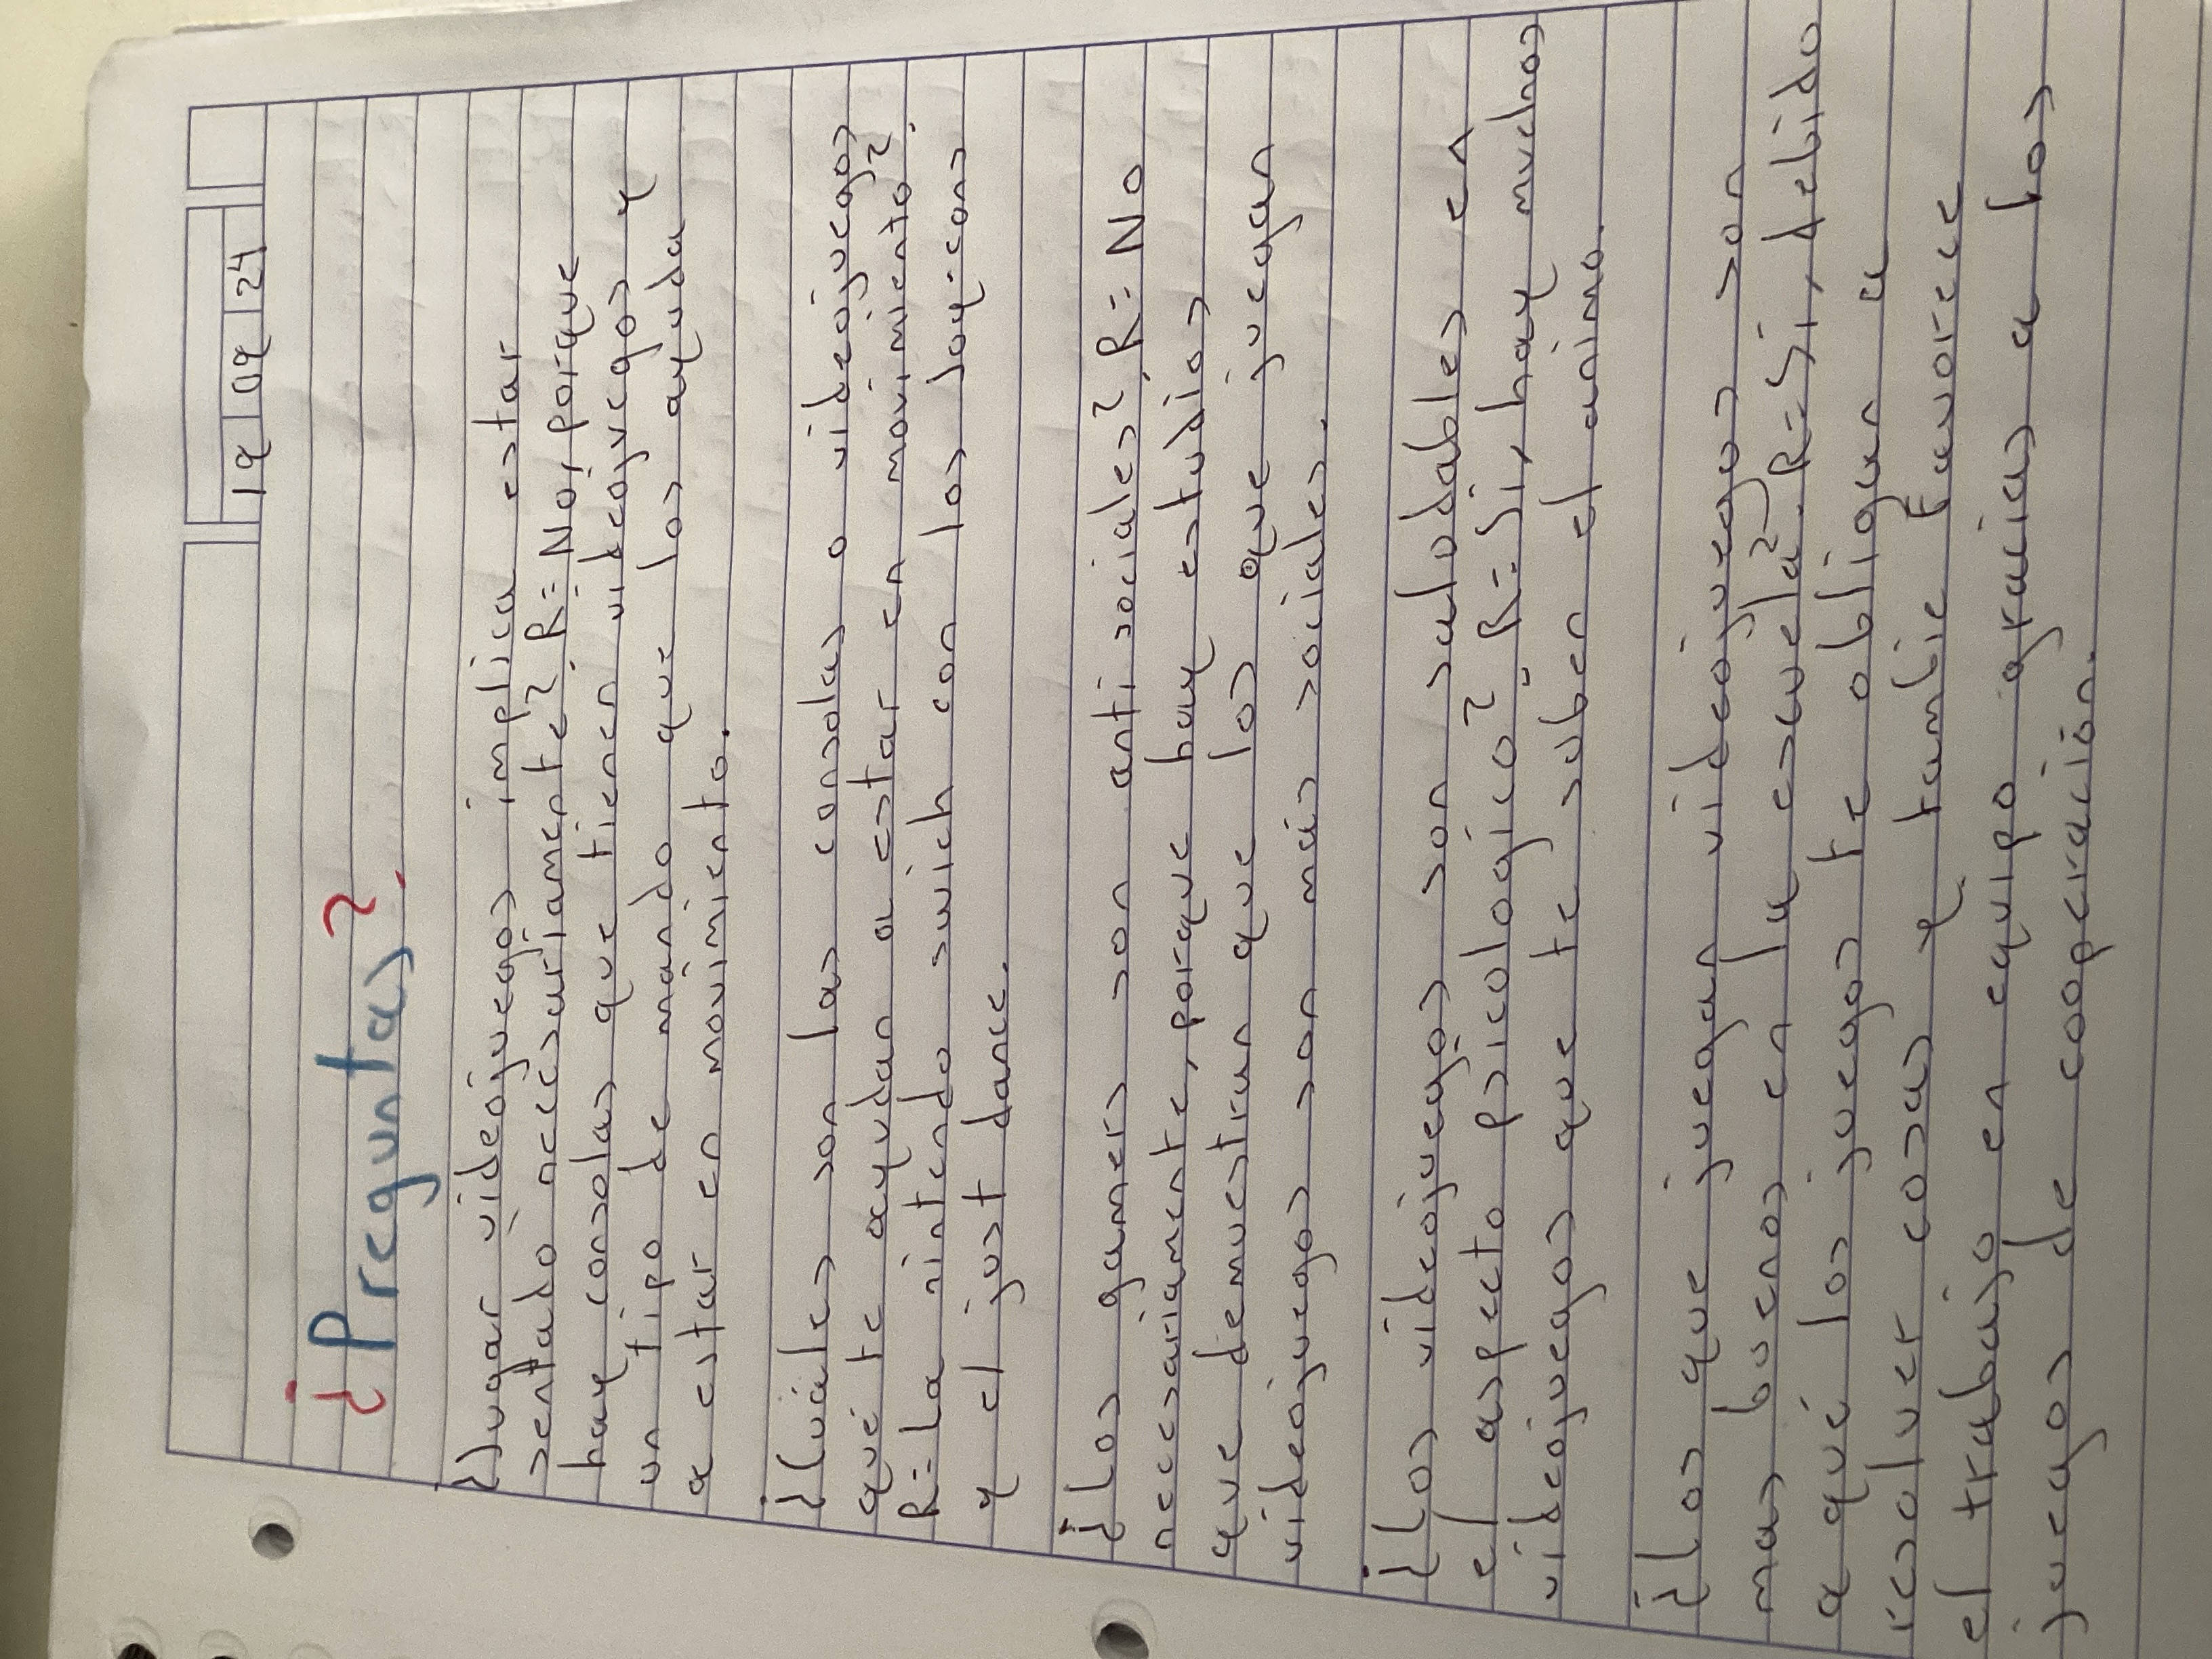 19 09 24
¿Preguntas?
¿Jugar videojuegos implica estar
sentado necesariamente? R= No, porque
hay consolas que tienen videojuegos y
un tipo de mando que los ayuda
a estar en movimiento.
¿Cuáles son las consolas o videojuegos
qué te ayudan a estar en movimiento?
R= La nintendo swich con los joy-cons
y el just dance.
¿Los gamers son anti sociales? R= No
necesariamente, porque hay estudios
que demuestran que los que juegan
videojuegos son más sociales.
¿Los videojuegos son saludables en
el aspecto psicologico? R= Si, hay muchos
videojuegos que te suben el animo.
¿Los que juegan videojuegos son
mas buenos en la escuela? R= Si, debido
a qué los juegos te obligan a
resolver cosas y tambie favorece
el trabajo en equipo gracias a los
juegos de cooperación.